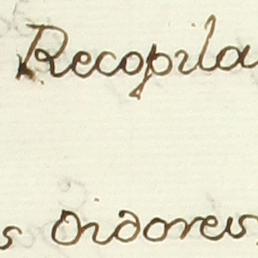 Recopila
s Oidores,